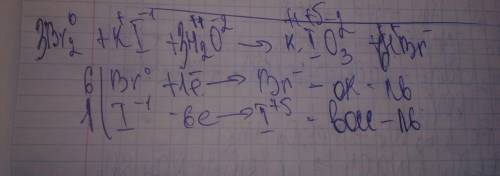 3Br₂⁰ + K⁺I⁻¹ + 3H₂⁺O⁻² → K⁺I⁺⁵O₃⁻² + 6HBr⁻
6 | Br⁰ + 1ē → Br⁻ - ок - ль
1 | I⁻¹ - 6e → I⁺⁵ - вос - ль